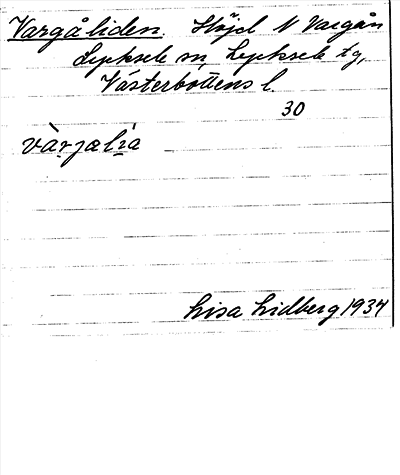 Vargåliden. Höjd N Vargån
Lycksele sn, Lycksele tg,
Västerbottens l.
30
vàrjalìa
Lisa Lidberg 1934